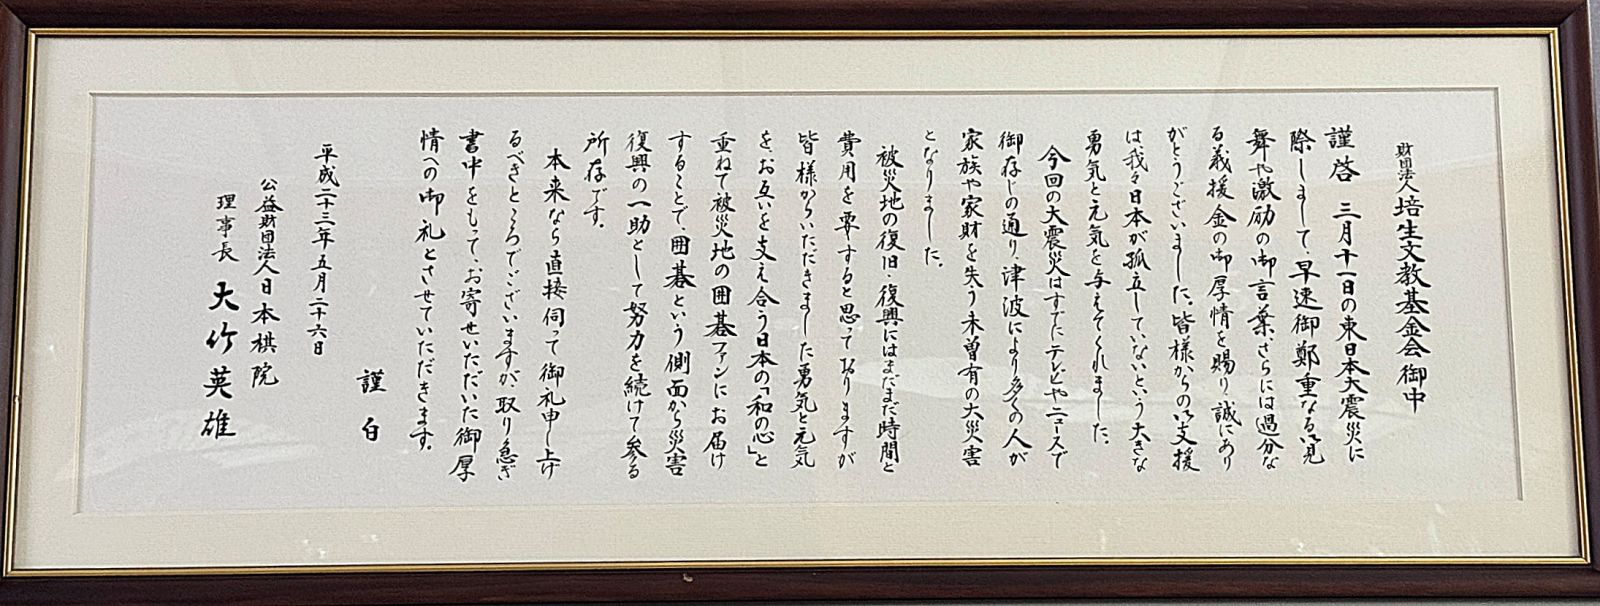 財団法人培生文教基金会御中
謹啓　三月十一日の東日本大震災に
際しまして、早速御鄭重なる御見
舞や激励の御言葉、さらには過分な
る義援金の御厚情を賜り、誠にあり
がとうございました。皆様からの御支援
は我々日本が孤立していないという大きな
勇気と元気を与えてくれました。
今回の大震災はすでにテレビやニュースで
御存じの通り、津波により多くの人が
家族や家財を失う未曽有の大災害
となりました。
被災地の復旧・復興にはまだまだ時間と
費用を要すると思っておりますが
皆様からいただきました勇気と元気
を、お互いを支え合う日本の「和の心」と
重ねて被災地の囲碁ファンにお届け
することで、囲碁という側面から災害
復興の一助として努力を続けて参る
所存です。
本来なら直接伺って御礼申し上げ
るべきところでございますが、取り急ぎ
書中をもって、お寄せいただいた御厚
情への御礼とさせていただきます。
謹白
平成二十三年五月二十六日
公益財団法人日本棋院
理事長　大竹英雄